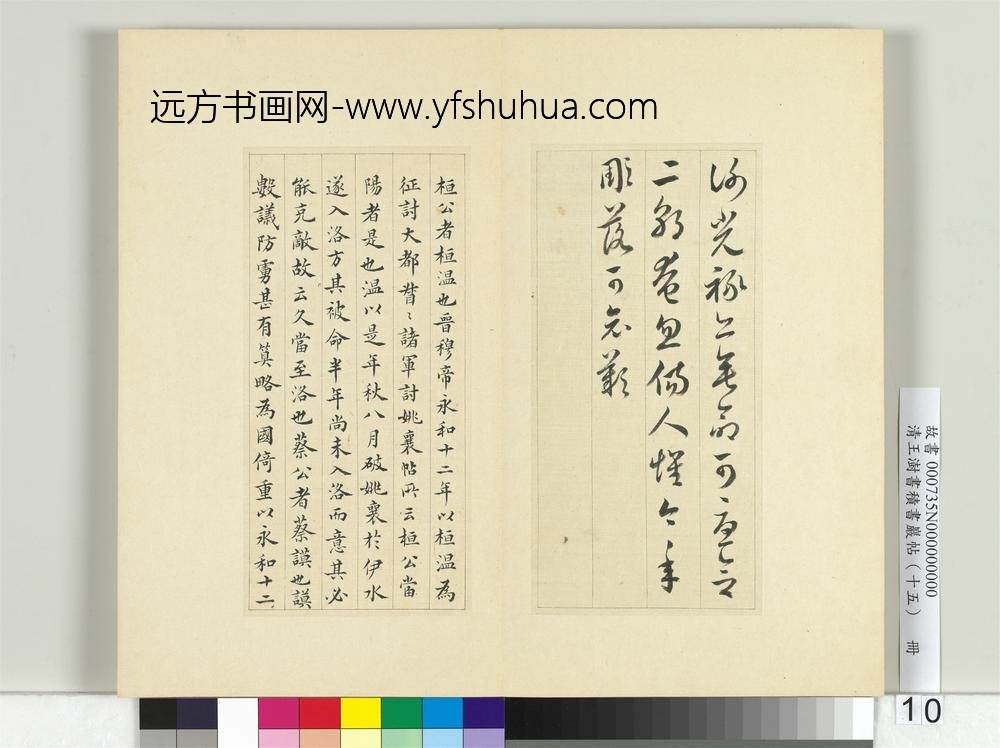 远方书画网-www.yfshuhua.com
謝光祿亡無可言
二奄忽傷人懷今年
彫落可歎
桓公者桓温也晉穆帝永和十二年以桓温為
征討大都督〻諸軍討姚襄帖所云桓公當
陽者是也温以是年秋八月破姚襄於伊水
遂入洛方其被命半年尚未入洛而意其必
能克敵故云久當至洛也蔡公者蔡謨也謨
數議防虜甚有筭略為國倚重以永和十二
故書 000735N000000000
清王澍書積書巖帖(十五) 冊
10